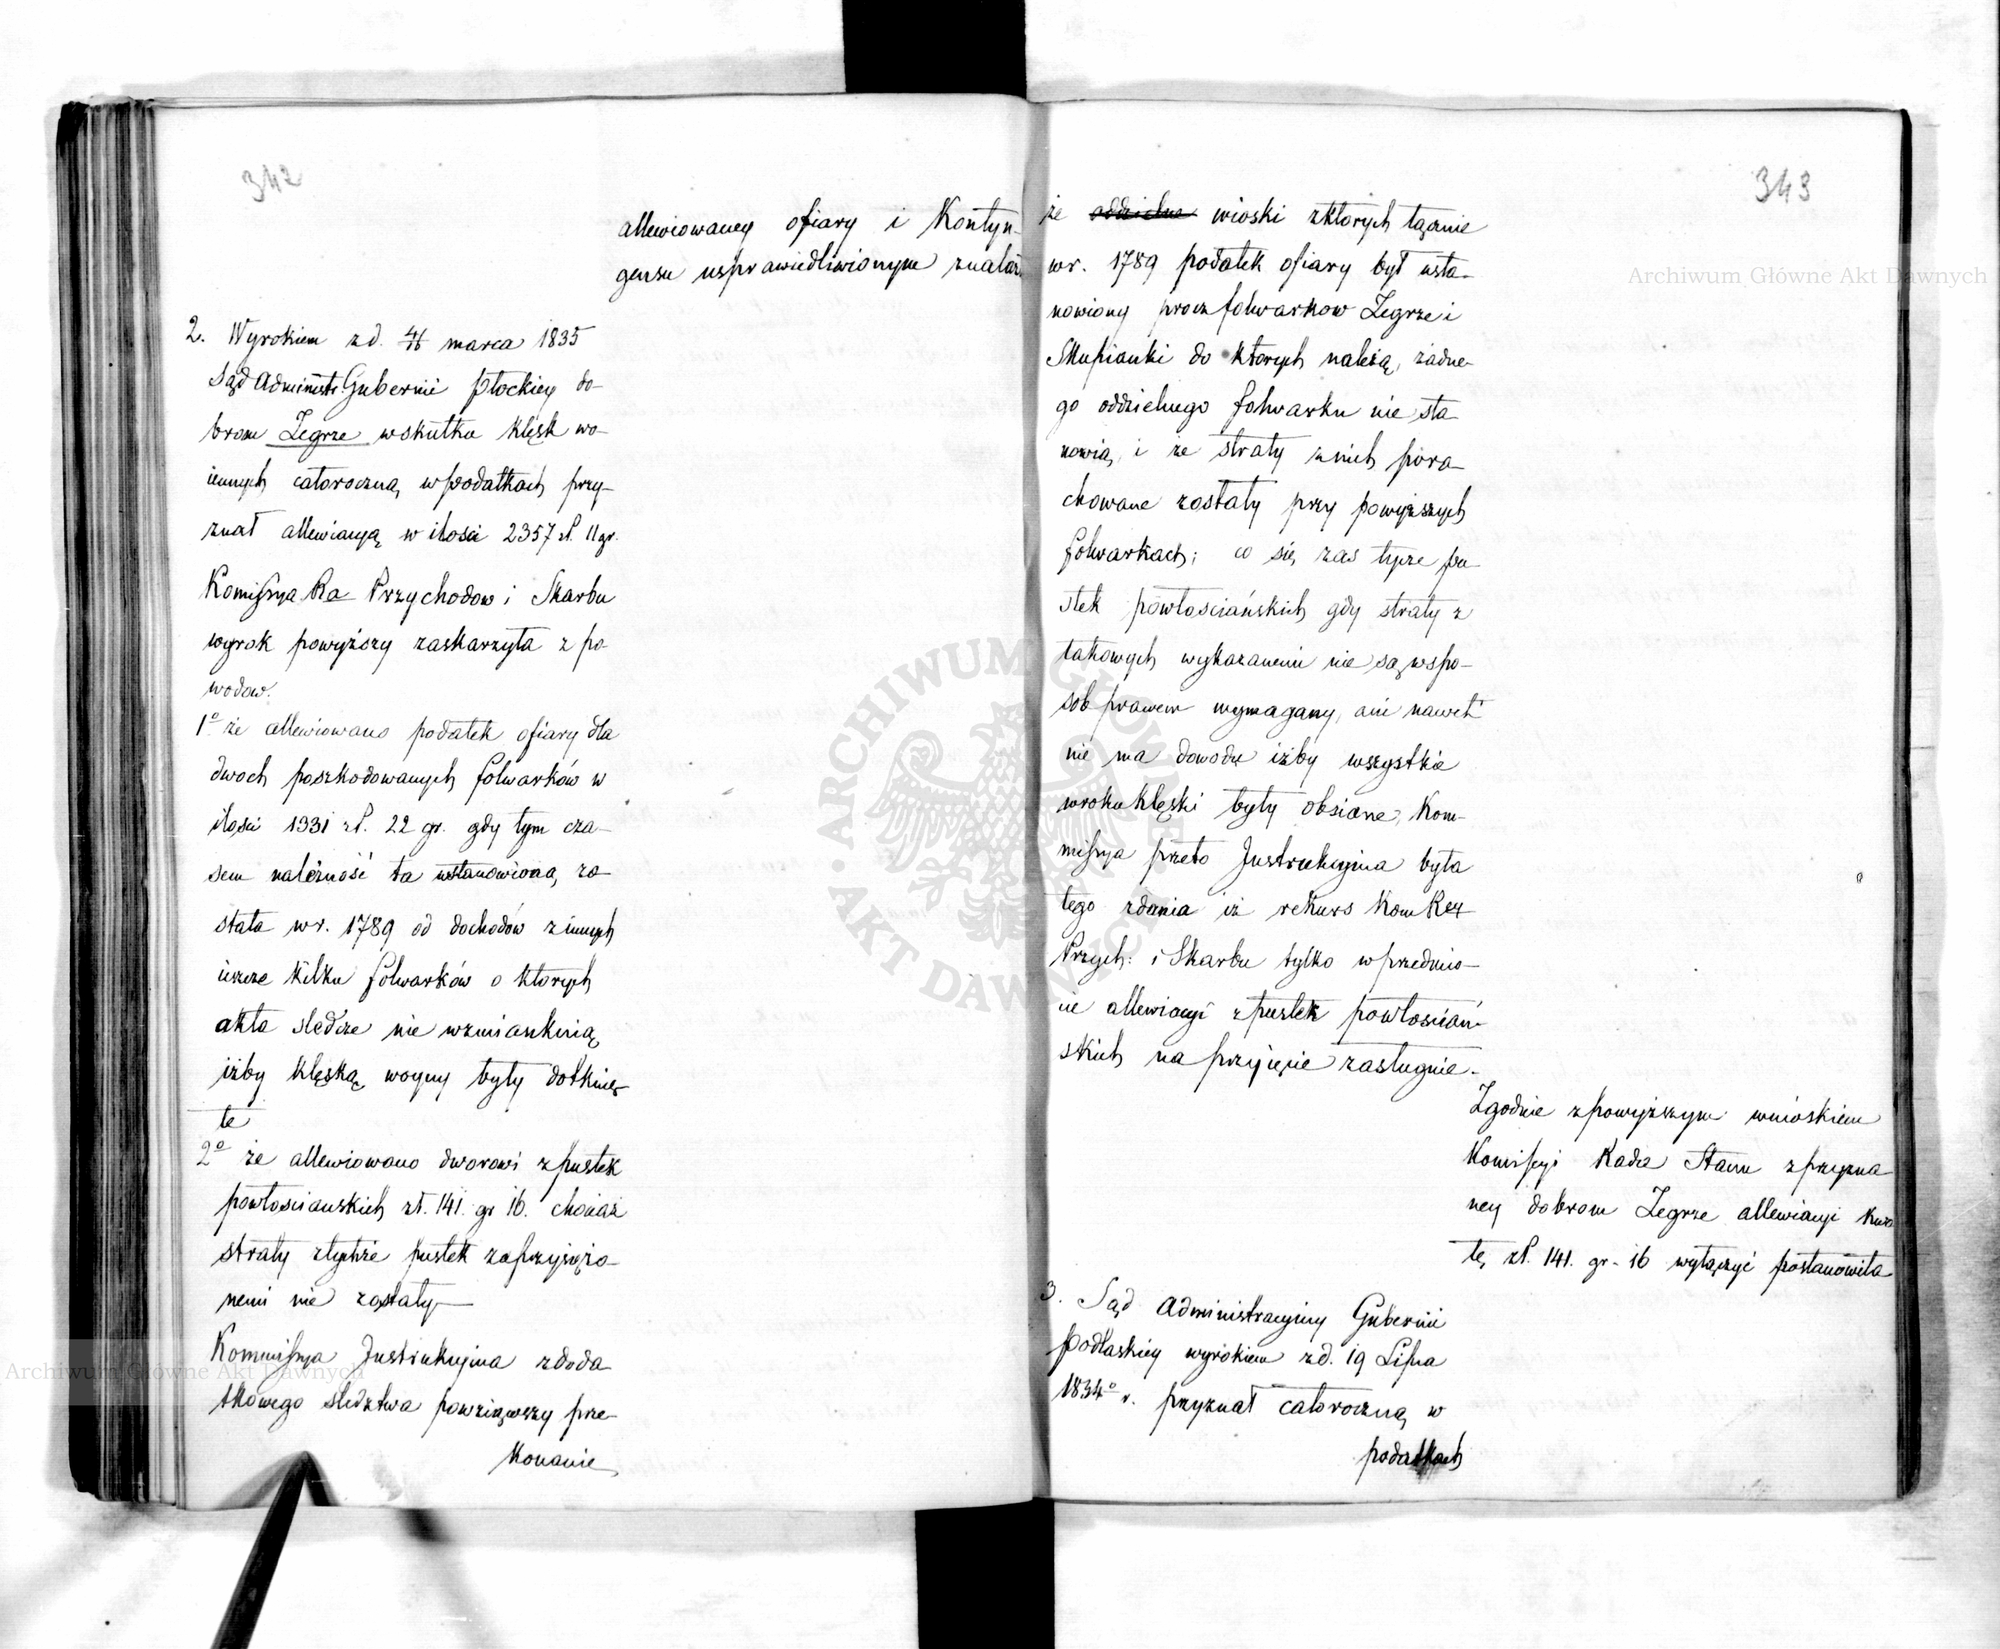 342
allewiowaney ofiary i Kontyn-
gensu usprawiedliwionym znalaz
2. Wyrokiem z d. 4/16 marca 1835
Sąd Administr. Gubernii Płockiey do-
brom Zegrze wskutku klęsk wo-
iennych całoroczną w podatkach przy-
znał allewiacyą w ilosci 2357 zł. 11 gr.
Komissya Ra Przychodow i Skarbu
wyrok powyższy zaskarzyła z po-
wodow.
1º że allewiowano podatek ofiary dla
dwoch poszkodowanych folwarków w
ilości 1331 zł. 22 gr. gdy tym cza-
sem należność ta ustanowioną zo-
stała w r. 1789 od dochodów z innych
ieszcze kilku folwarków o ktorych
akta śledcze nie wzmiankuią
iżby klęską woyny były dotknię-
te
2º że allewiowano dworowi z pustek
powłosciańskich zł. 141. gr 16. chociaż
straty z tychże pustek zaprzysiężo-
nemi nie zostały
Kommissya Instrukcyina z doda
tkowego sledztwa powziąwszy prze-
konanie
343
że oddzielne wioski z ktorych łącznie
w r. 1789 podatek ofiary był usta-
nowiony procz folwarkow Zegrze i
Skupianki do ktorych należą, żadne-
go oddzielnego folwarku nie sta
nowią, i że straty z nich pora-
chowane zostały przy powyższych
folwarkach; co się zas tycze pu
stek powłosciańskich gdy straty z
takowych wykazanemi nie są w spo-
sob prawem wymagany, ani nawet
nie ma dowodu iżby wszystkie
w roku klęski były obsiane, Kom-
missya przeto Instrukcyina była
tego zdania iż rekurs Kom Rey
Przych: i Skarbu tylko w przedmio-
cie allewiacyi z pustek powłościań-
skich na przyięcie zasługuie.
Zgodnie z powyższym wnioskiem
Komissyi Rada Stanu z przyzna
ney dobrom Zegrze allewiacyi kwo
tę zł. 141. gr. 16 wyłączyć postanowiła
3. Sąd Administracyiny Gubernii
Podlaskiey wyrokiem z d. 19 Lipca
1834º r. przyznał całoroczną w
podatkach
Archiwum Główne Akt Dawnych
Archiwum Główne Akt Dawnych
ARCHIWUM GŁÓWNE AKT DAWNYCH